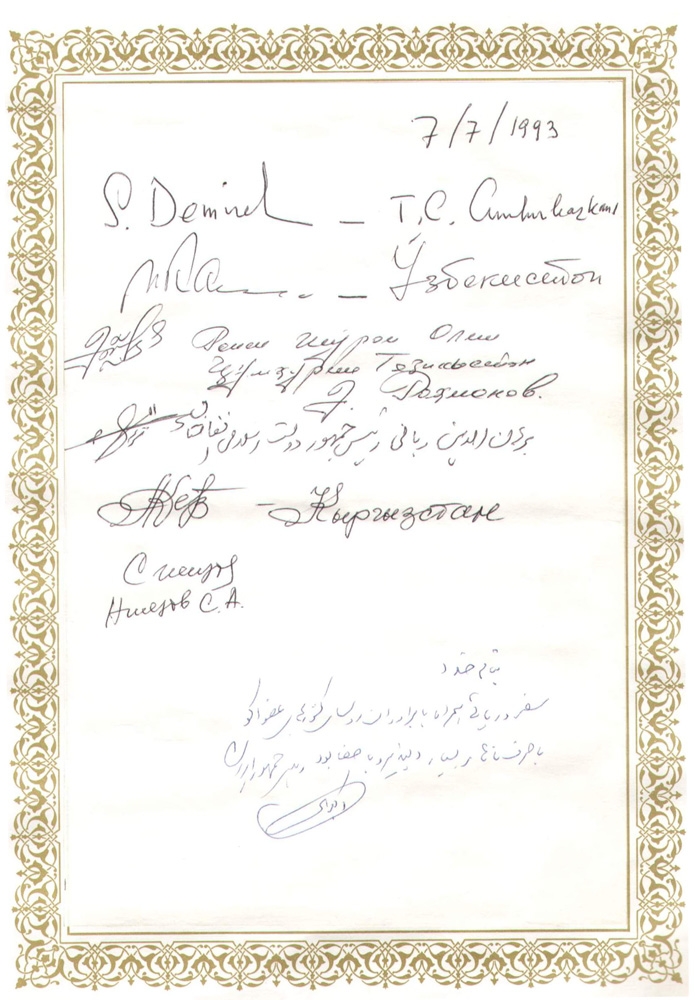 7/7/1993
S. Demirel — T.C. Cumhurbaşkanı
— Ўзбекистон
Раиси Шӯрои Олии
Ҷумҳурии Тоҷикистон
Э. Раҳмонов.
برهان الدین ربانی رئیس جمهور دولت اسلامی افغانستان
— Кыргызстан
Ниязов С.А.
بنام خدا
سفر دریائی همراه با برادران روسای کشورهای عضو اکو
با حرف ها بسیار دلپذیر و با صفا بود رئیس جمهور ایران